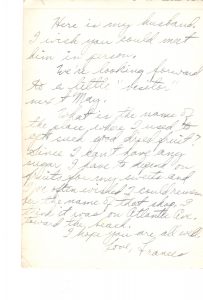 Here is my husband.
I wish you could meet
him in person.
We're looking forward
to a little "besito"
next May.
What is the name of
the place where I used to
get such good dried fruit?
Since I can't have any
sugar I have to depend on
fruits for my sweets and
I've often wished I could remem-
ber the name of that shop. I
think it was on Atlantic Ave.
toward the beach.
I hope you are all well.
Love, Frances